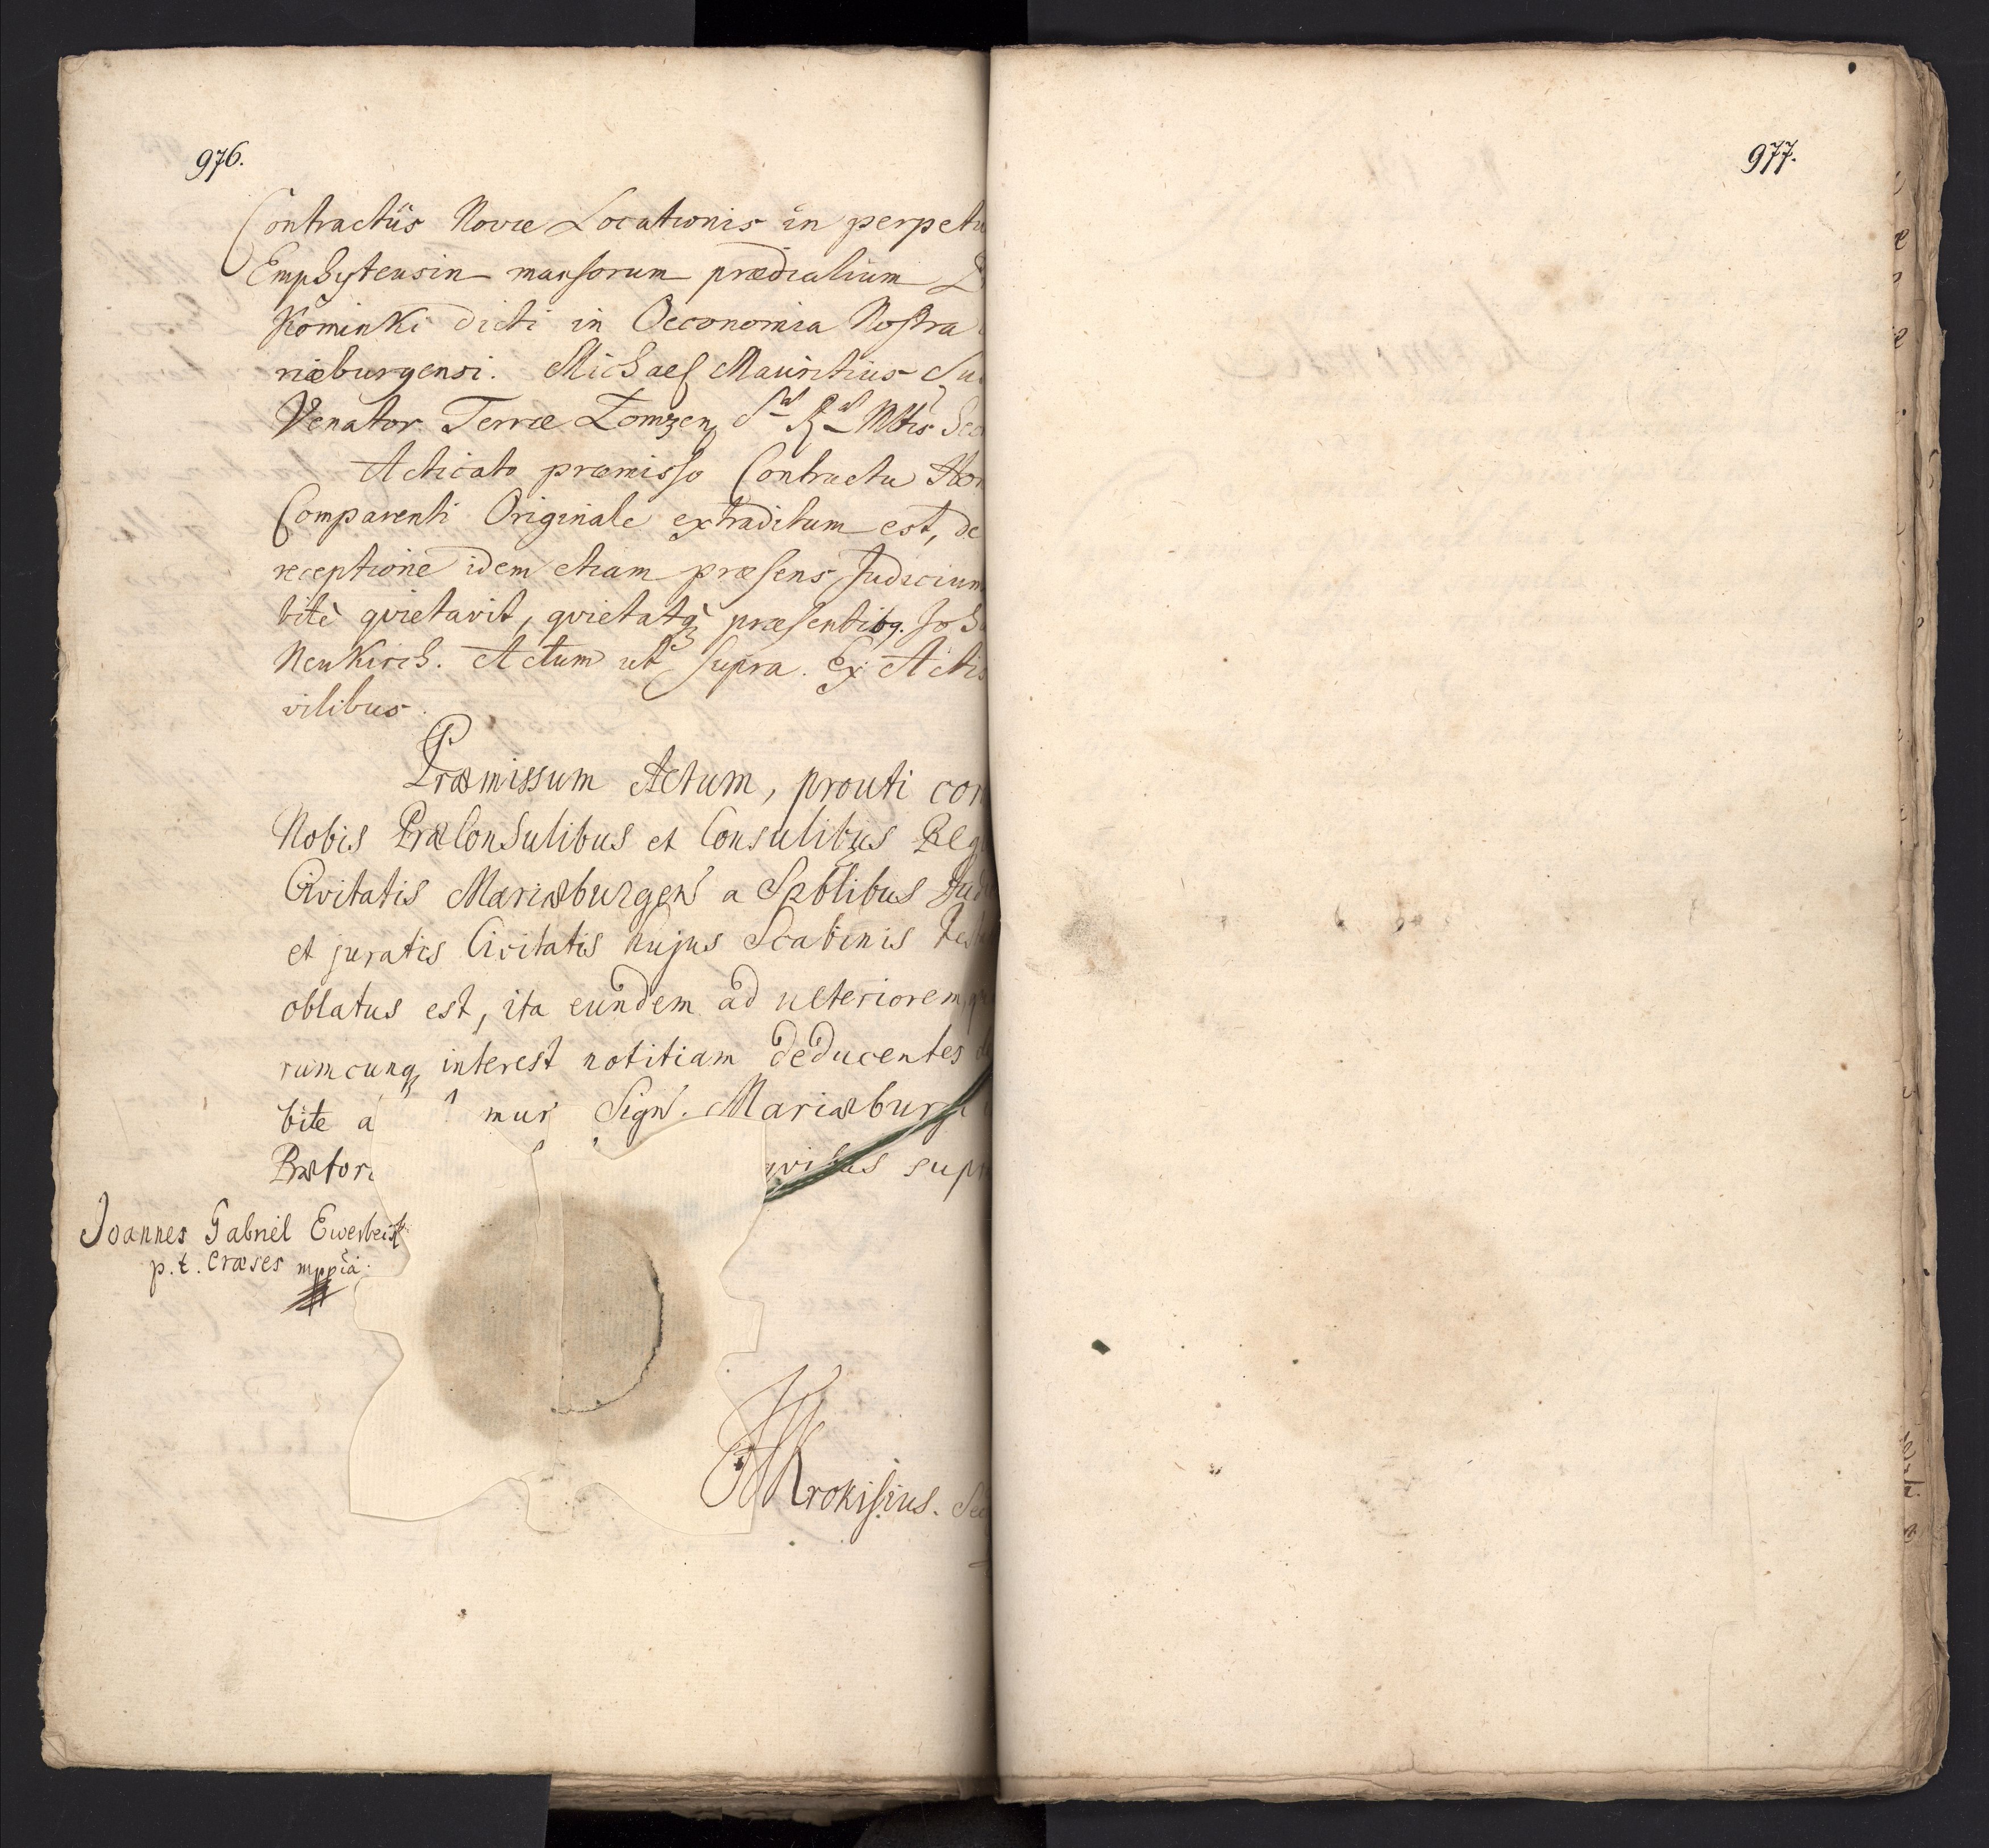 976.
Contractûs Novæ Locationis in perpetu
Emphyteusin mansorum prædialium
Kominki dicti in Oeconomia Nostra
riæburgensi. Michael Mauritius
Venator Terræ Łomzen S. R. Mttis Sec
Acticato præmisso Contractu Hon
Comparenti Originale extraditum est, de
receptione idem etiam præsens Judicium
bitè qvietavit, qvietatq; præsentibq. Joh
Neukirch. Actum ut supra. Ex Actis
vilibus.
Præmissum Actum, prouti cor
Nobis PræConsulibus et Consulibus Reg
Civitatis Mariæburgen a Spblibus Jud
et juratis Civitatis hujus Scabinis
oblatus est, ita eundem ad ulteriorem
rumcunq; interest notitiam deducentes
bite a mur Sign. Mariæburgi
Prætor supr
Joannes Gabriel
p.t. Præses mppia
Krokisius. Sec
977.